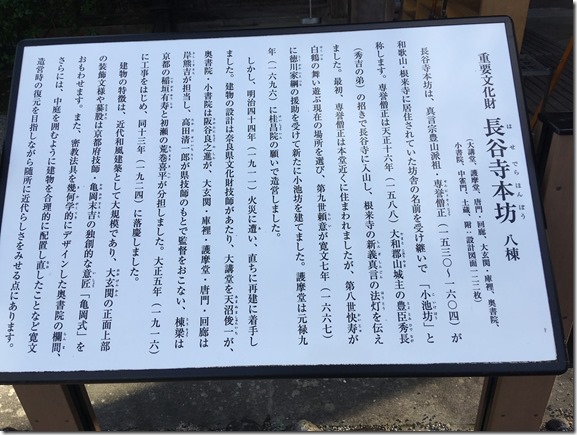 重要文化財 長谷寺本坊 八棟
はせでらほんぼう
(大講堂、護摩堂、唐門・回廊、大玄関・庫裡、奥書院、
小書院、中雀門、土蔵、附:設計図面一二一枚)
長谷寺本坊は、真言宗豊山派祖・専誉僧正(一五三〇~一六〇四)が
和歌山・根来寺に居住されていた坊舎の名前を受け継いで「小池坊」と
称します。専誉僧正は天正十六年(一五八八)大和郡山城主の豊臣秀長
(秀吉の弟)の招きで長谷寺に入山し、根来寺の新義真言の法灯を伝え
ました。最初、専誉僧正は本堂近くに住まわれましたが、第八世快寿が
白鶴の舞い遊ぶ現在の場所を選び、第九世頼意が寛文七年(一六六七)
に徳川家綱の援助を受けて新たに小池坊を建てました。護摩堂は元禄九
年(一六九六)に桂昌院の願いで造営しました。
しかし、明治四十四年(一九一一)火災に遭い、直ちに再建に着手し
ました。建物の設計は奈良県文化財技師があたり、大講堂を天沼俊一が、
奥書院・小書院は阪谷良之進が、大玄関・庫裡・護摩堂・唐門・回廊は
岸熊吉が担当し、高田清一郎が県技師のもとで監督をおこない、棟梁は
京都の稲垣有寿と初瀬の荒巻喜平が分担しました。大正五年(一九一六)
に工事をはじめ、同十三年(一九二四)に落慶しました。
建物の特徴は、近代和風建築として大規模であり、大玄関の正面上部
の装飾文様や蟇股は京都府技師・亀岡末吉の独創的な意匠「亀岡式」を
おもわせます。また、密教法具を幾何学的にデザインした奥書院の欄間、
さらには、中庭を囲むように建物を合理的に配置し直したことなど寛文
造営時の復元を目指しながら随所に近代らしさをみせる点にあります。